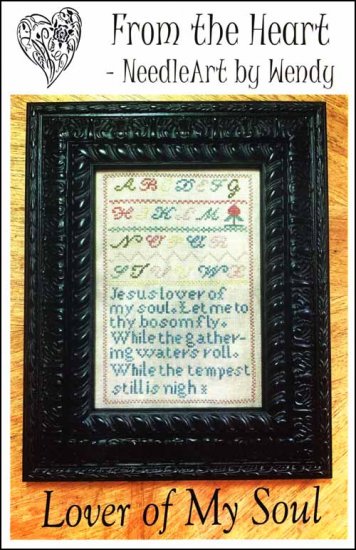 From the Heart
- NeedleArt by Wendy
A B C D E F G
H I J K L M
N O P Q R
S T U V W X
Jesus lover of
my soul. Let me to
thy bosom fly.
While the gather-
ing waters roll.
While the tempest
still is nigh
Lover of My Soul